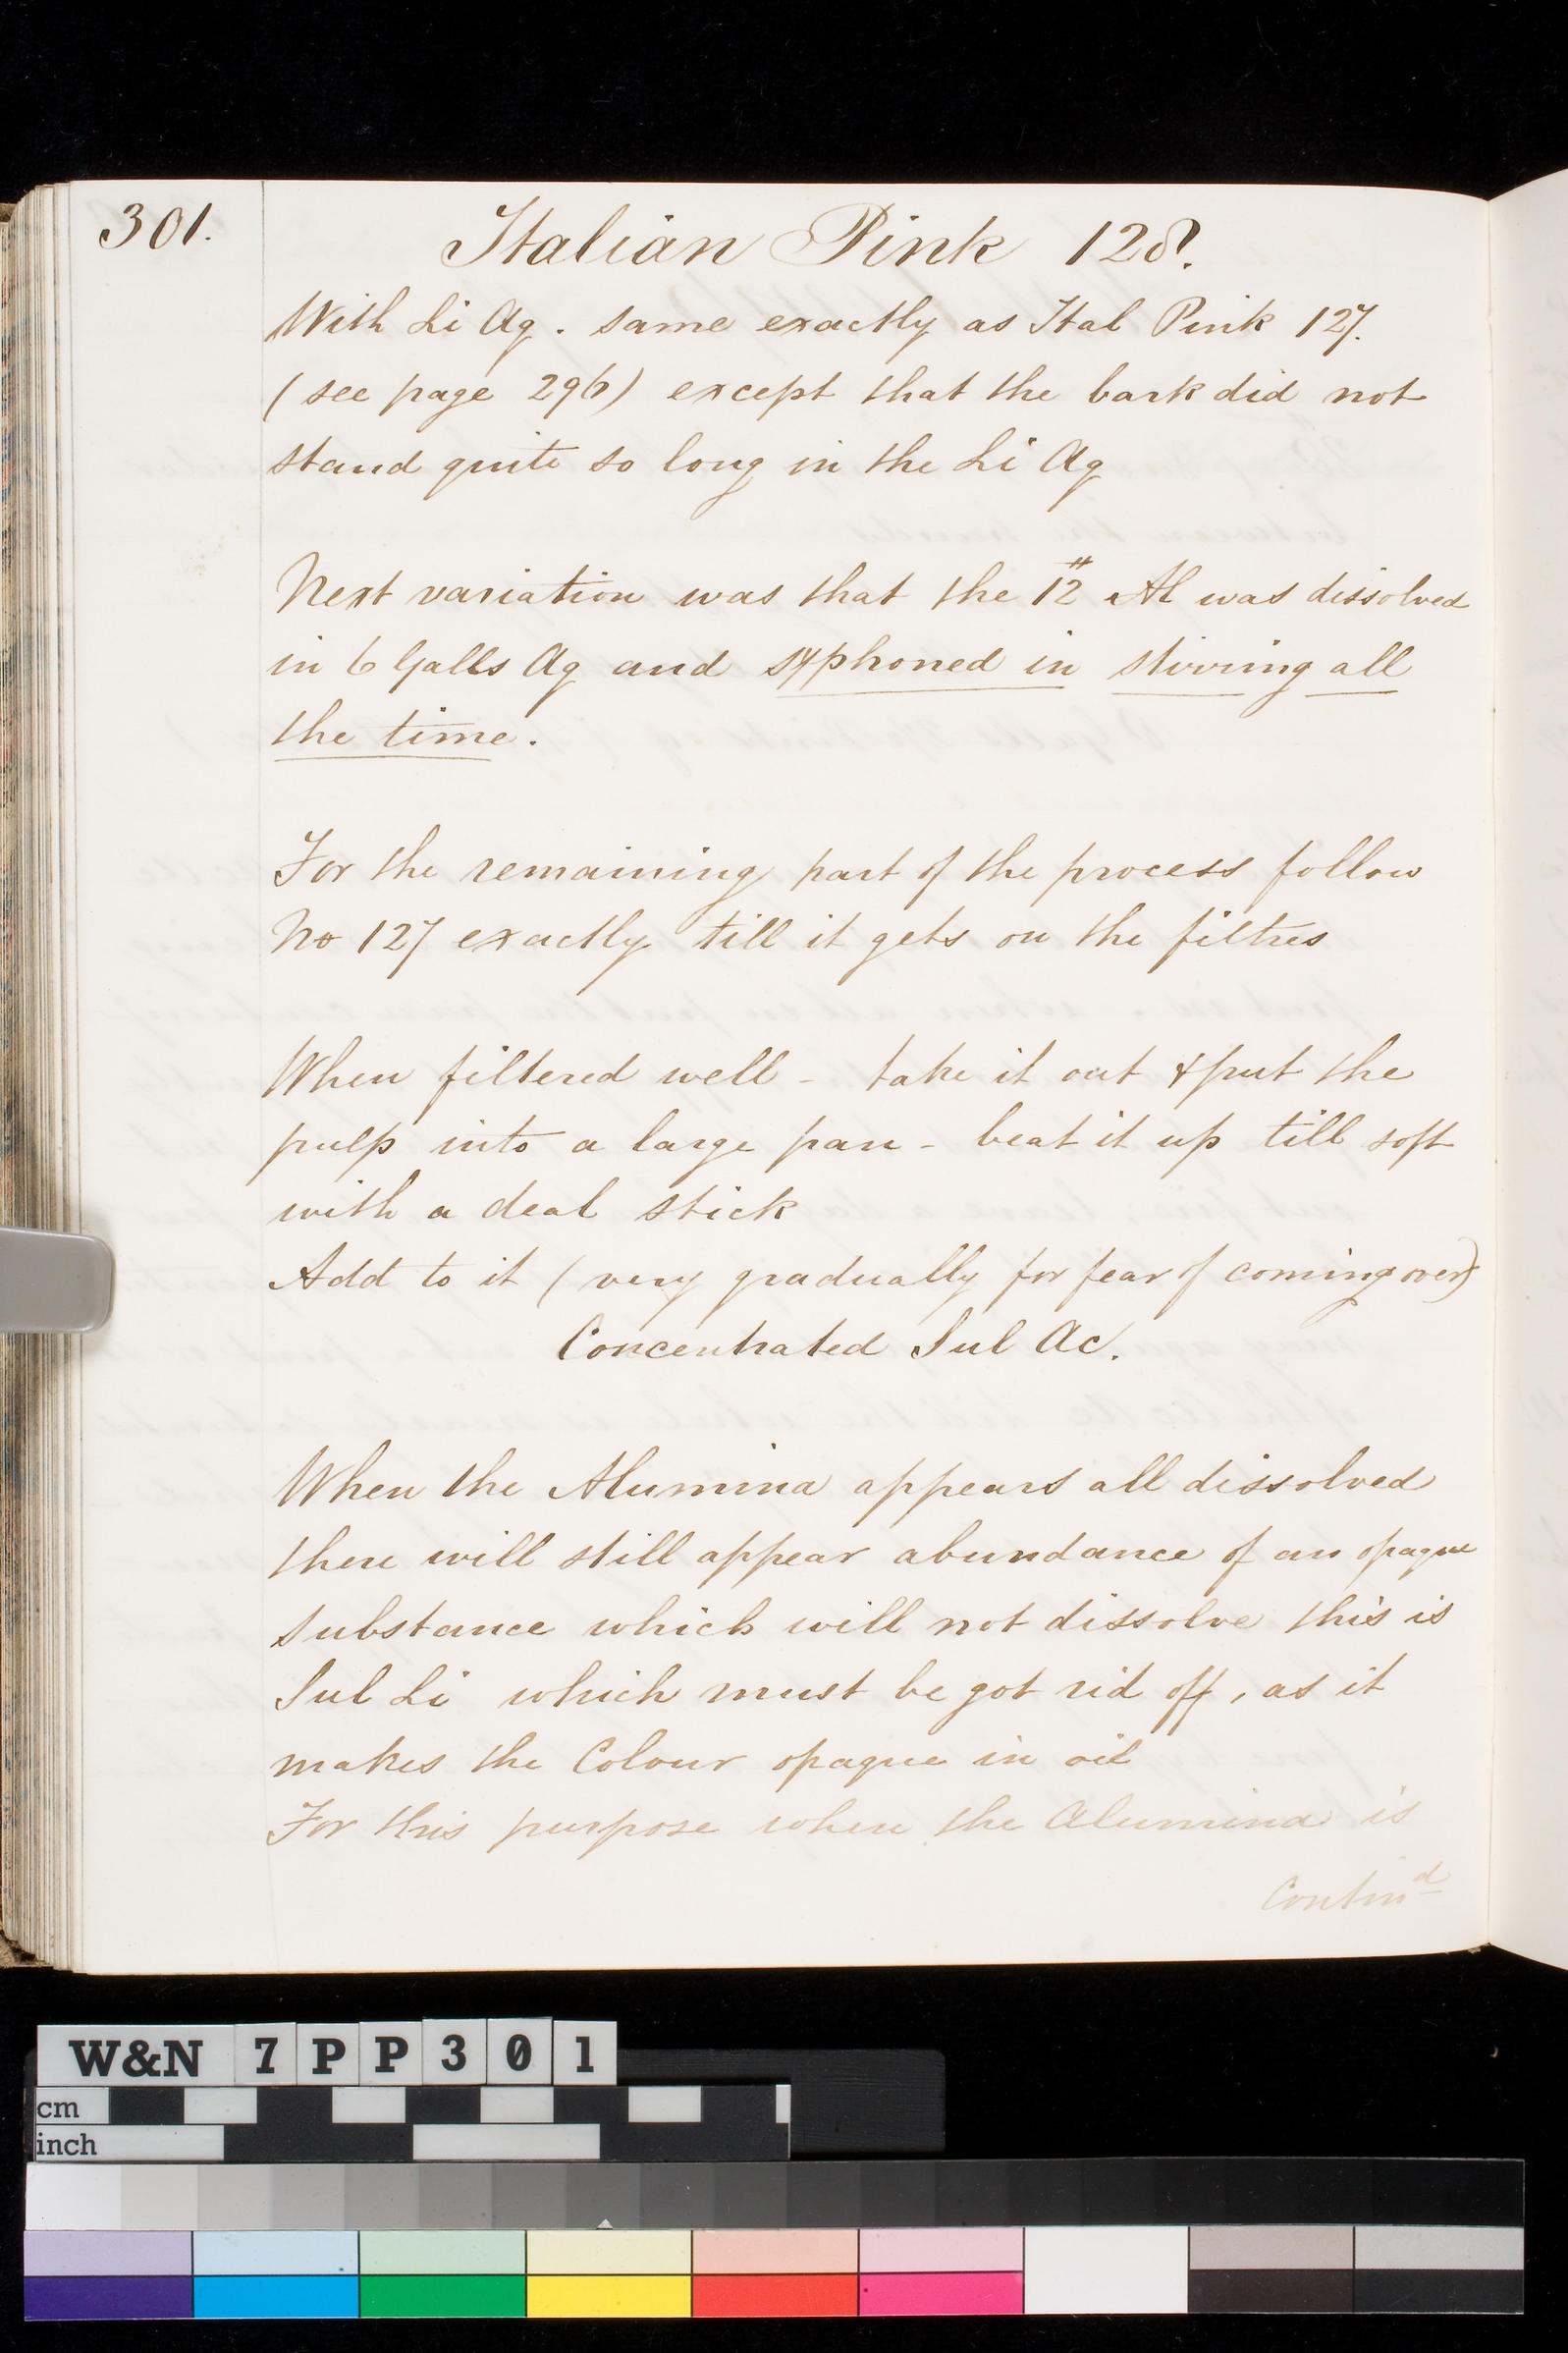 301.
Italian Pink 128.
With Li Aq. same exactly as Ital Pink 127.
(see page 296) except that the bark did not
stand quite so long in the Li Aq
Next variation was that the 12 # Al was dissolved
in 6 Galls Aq and syphoned in stirring all
the time.
For the remaining part of the process follow
No 127 exactly till it gets on the filtres
When filtered well - take it out & put the
pulp into a large pan - beat it up till soft
with a deal stick
Add to it (very gradually for fear of coming over)
Concentrated Sul Ac.
When the Alumina appears all dissolved
there will still appear abundance of an opaque
substance which will not dissolve this is
Sul Li which must be got rid off, as it
makes the Colour opaque in oil
For this purpose when the Alumina is
Contind
W&N 7PP301
cm
inch